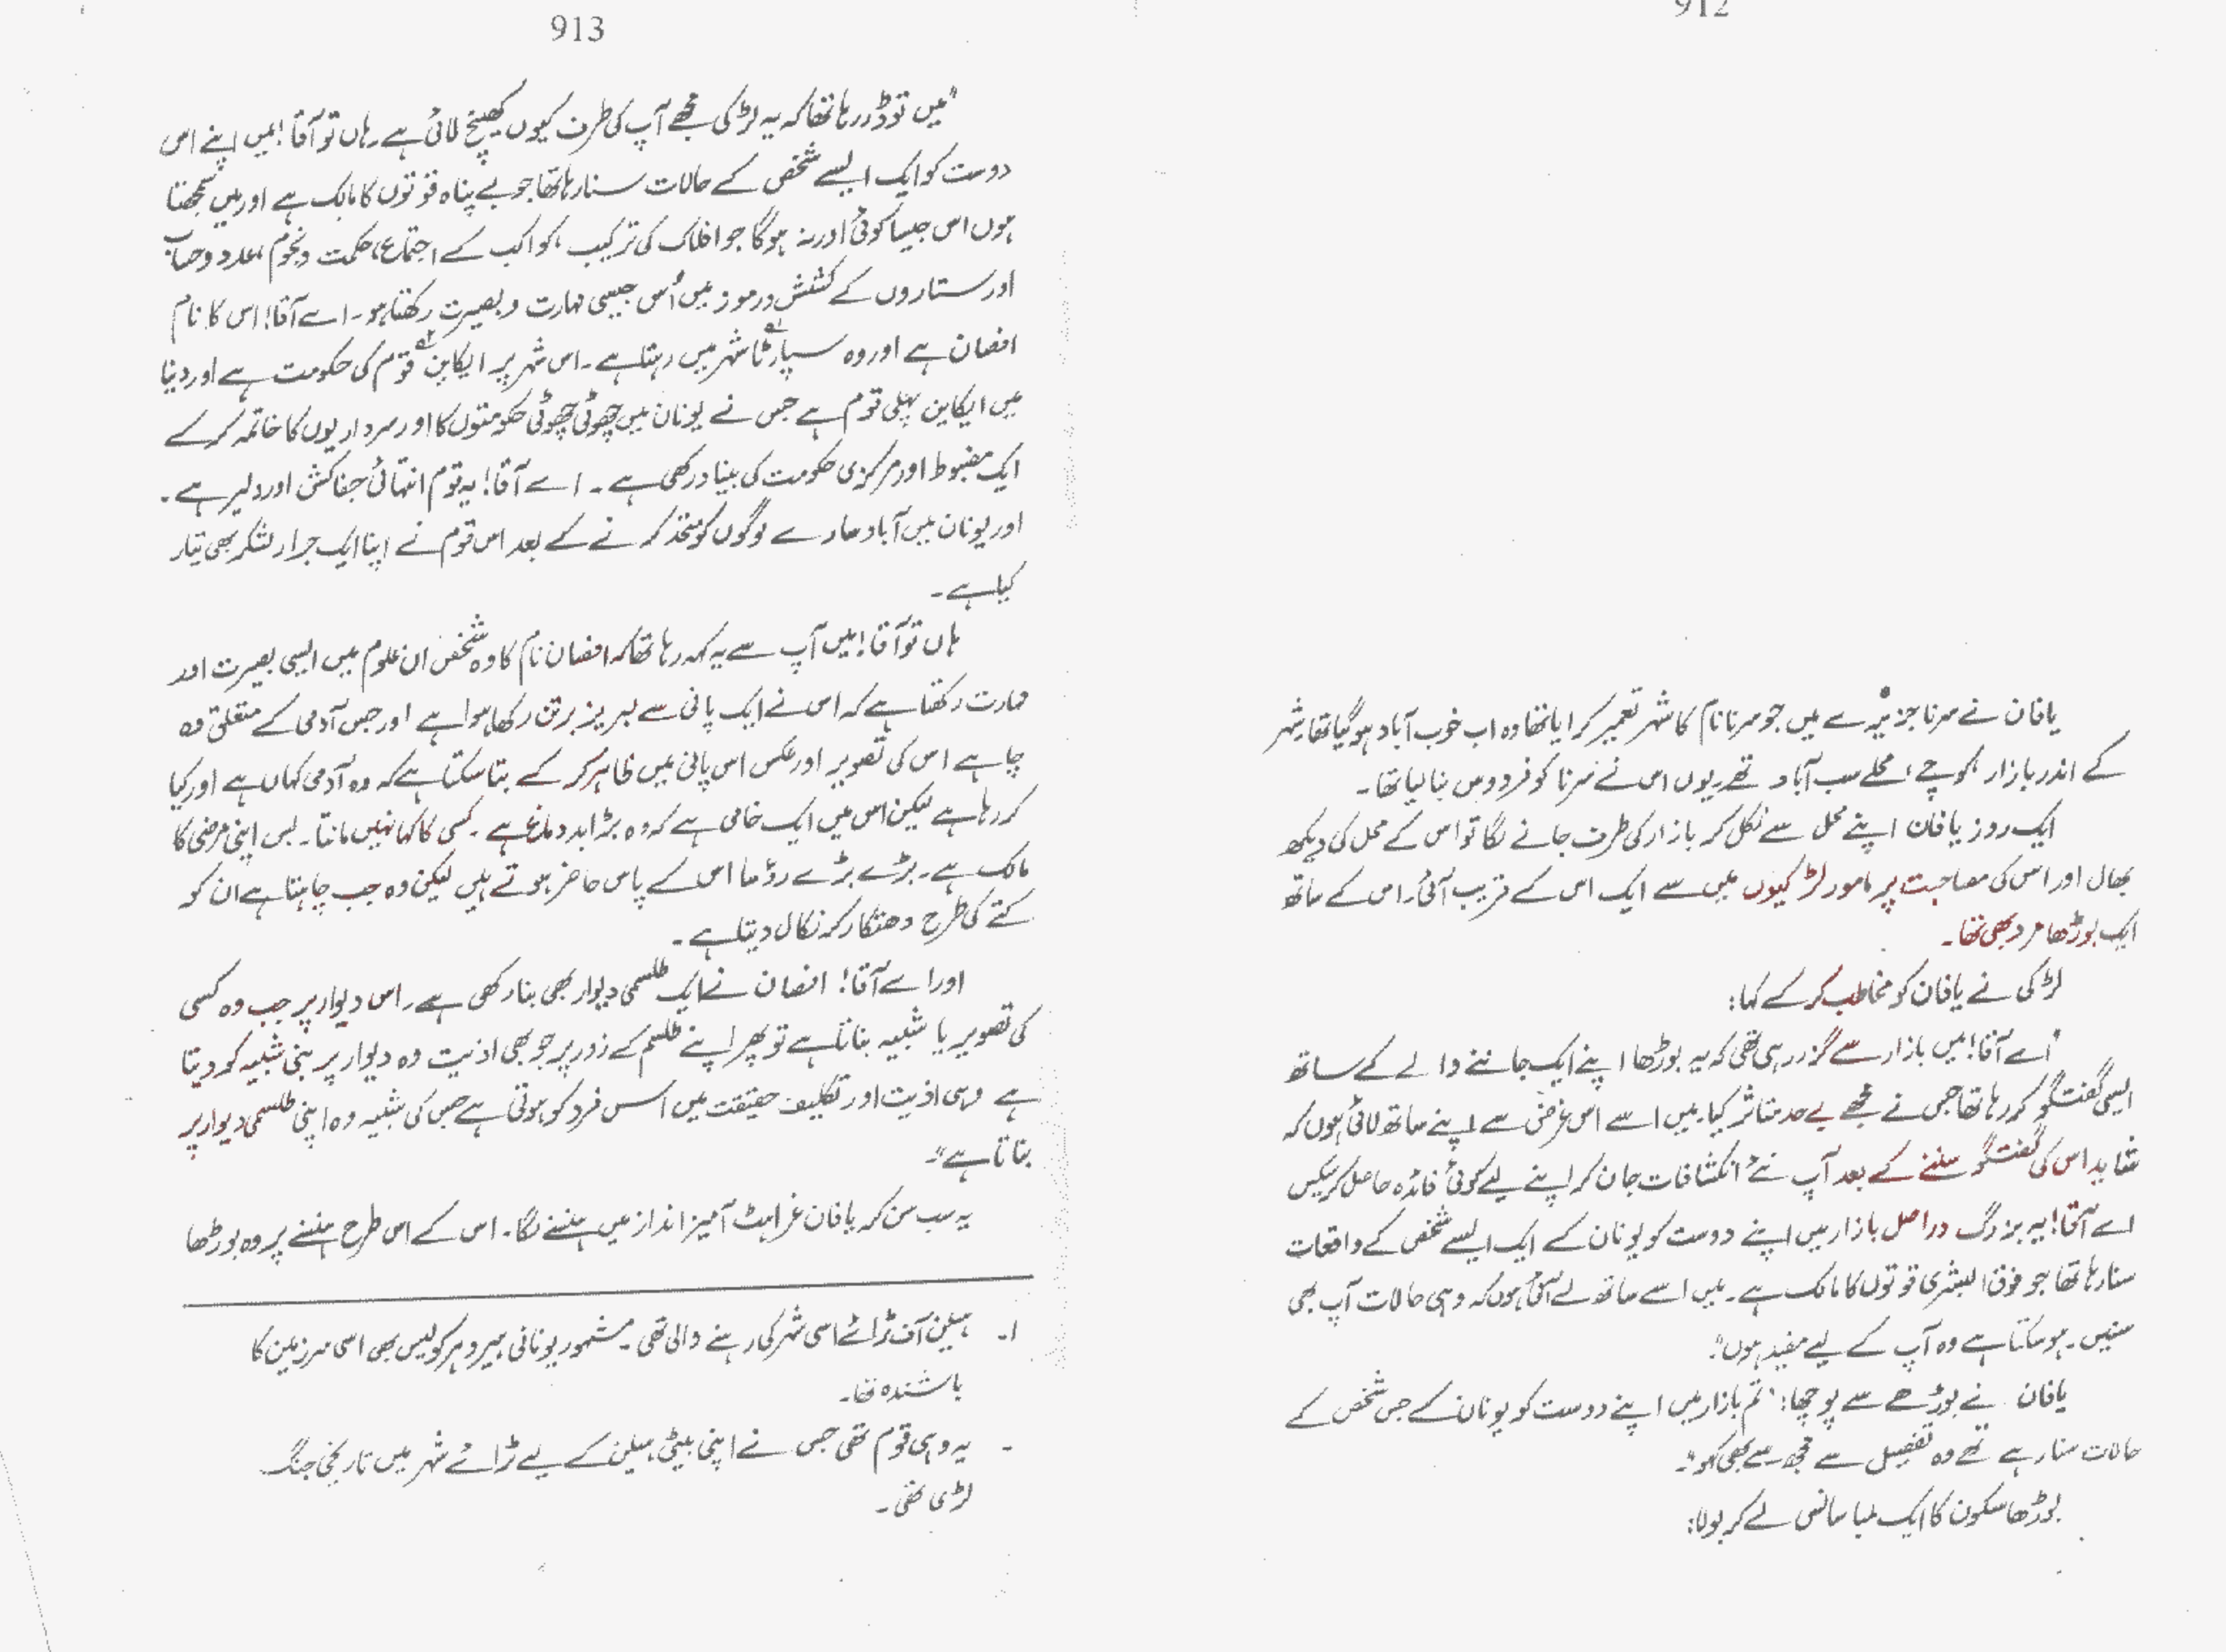 912
یافان نے سرنا جزیرے میں جو سرنا نام کا شہر تعمیر کرایا تھا وہ اب خوب آباد ہو گیا تھا۔ شہر
کے اندر بازار، کوچے، محلے سب آباد تھے۔ یوں اس نے سرنا کو فردوس بنا لیا تھا۔
ایک روز یافان اپنے محل سے نکل کر بازار کی طرف جانے لگا تو اس کے محل کی دیکھ
بھال اور اس کی مصاحبت پر مامور لڑکیوں میں سے ایک اس کے قریب آئی۔ اس کے ساتھ
ایک بوڑھا مرد بھی تھا۔
لڑکی نے یافان کو مخاطب کر کے کہا:
"اے آقا! میں بازار سے گزر رہی تھی کہ یہ بوڑھا اپنے ایک جاننے والے کے ساتھ
ایسی گفتگو کر رہا تھا جس نے مجھے بے حد متاثر کیا۔ میں اسے اس غرض سے اپنے ساتھ لائی ہوں کہ
شاید اس کی گفتگو سننے کے بعد آپ نئے انکشافات جان کر اپنے لیے کوئی فائدہ حاصل کر سکیں
اے آقا! یہ بزرگ دراصل بازار میں اپنے دوست کو یونان کے ایک ایسے شخص کے واقعات
سنا رہا تھا جو فوق البشری قوتوں کا مالک ہے۔ میں اسے ساتھ لے آئی ہوں کہ وہی حالات آپ بھی
سنیں۔ ہو سکتا ہے وہ آپ کے لیے مفید ہوں"۔
یافان نے بوڑھے سے پوچھا: "تم بازار میں اپنے دوست کو یونان کے جس شخص کے
حالات سنا رہے تھے وہ تفصیل سے مجھ سے بھی کہو"۔
بوڑھا سکون کا ایک لمبا سانس لے کر بولا:
913
"میں تو ڈر رہا تھا کہ یہ لڑکی مجھے آپ کی طرف کیوں کھینچ لائی ہے۔ ہاں تو آقا! میں اپنے اس
دوست کو ایک ایسے شخص کے حالات سنا رہا تھا جو بے پناہ قوتوں کا مالک ہے اور میں سمجھتا
ہوں اس جیسا کوئی اور نہ ہوگا جو افلاک کی ترکیب، کواکب کے اجتماع، حکمت و نجوم، عدد و حساب
اور ستاروں کے کشش و رموز میں اُس جیسی مہارت و بصیرت رکھتا ہو۔ اے آقا! اس کا نام
افضان ہے اور وہ سپارٹا شہر میں رہتا ہے۔ اس شہر پر ایکاین قوم کی حکومت ہے اور دنیا
میں ایکاین پہلی قوم ہے جس نے یونان میں چھوٹی چھوٹی حکومتوں کا اور سرداریوں کا خاتمہ کر کے
ایک مضبوط اور مرکزی حکومت کی بنیاد رکھی ہے۔ اے آقا! یہ قوم انتہائی جفاکش اور دلیر ہے۔
اور یونان میں آباد سارے لوگوں کو متحد کرنے کے بعد اس قوم نے اپنا ایک جرار لشکر بھی تیار
کیا ہے۔
ہاں تو آقا! میں آپ سے یہ کہہ رہا تھا کہ افضان نام کا وہ شخص ان علوم میں ایسی بصیرت اور
مہارت رکھتا ہے کہ اس نے ایک پانی سے لبریز برتن رکھا ہوا ہے اور جس آدمی کے متعلق وہ
چاہے اس کی تصویر اور عکس اس پانی میں ظاہر کر کے بتا سکتا ہے کہ وہ آدمی کہاں ہے اور کیا
کر رہا ہے لیکن اس میں ایک خامی ہے کہ وہ بڑا بد دماغ ہے۔ کسی کا کہا نہیں مانتا۔ بس اپنی مرضی کا
مالک ہے۔ بڑے بڑے رؤسا اس کے پاس حاضر ہوتے ہیں لیکن وہ جب چاہتا ہے ان کو
کتے کی طرح دھتکار کر نکال دیتا ہے۔
اور اے آقا! افضان نے ایک طلسمی دیوار بھی بنا رکھی ہے۔ اس دیوار پر جب وہ کسی
کی تصویر یا شبیہ بناتا ہے تو پھر اپنے طلسم کے زور پر جو بھی اذیت وہ دیوار پر بنی شبیہ کو دیتا
ہے وہی اذیت اور تکلیف حقیقت میں اس فرد کو ہوتی ہے جس کی شبیہ وہ اپنی طلسمی دیوار پر
بناتا ہے"۔
یہ سب سن کر یافان غراہٹ آمیز انداز میں ہنسنے لگا۔ اس کے اس طرح ہنسنے پر وہ بوڑھا
۱۔ ہیلن آف ٹرائے اسی شہر کی رہنے والی تھی۔ مشہور یونانی ہیرو ہرکولیس بھی اسی سرزمین کا
باشندہ تھا۔
۔ یہ وہی قوم تھی جس نے اپنی بیٹی ہیلن کے لیے ٹرائے شہر میں تاریخی جنگ
لڑی تھی۔